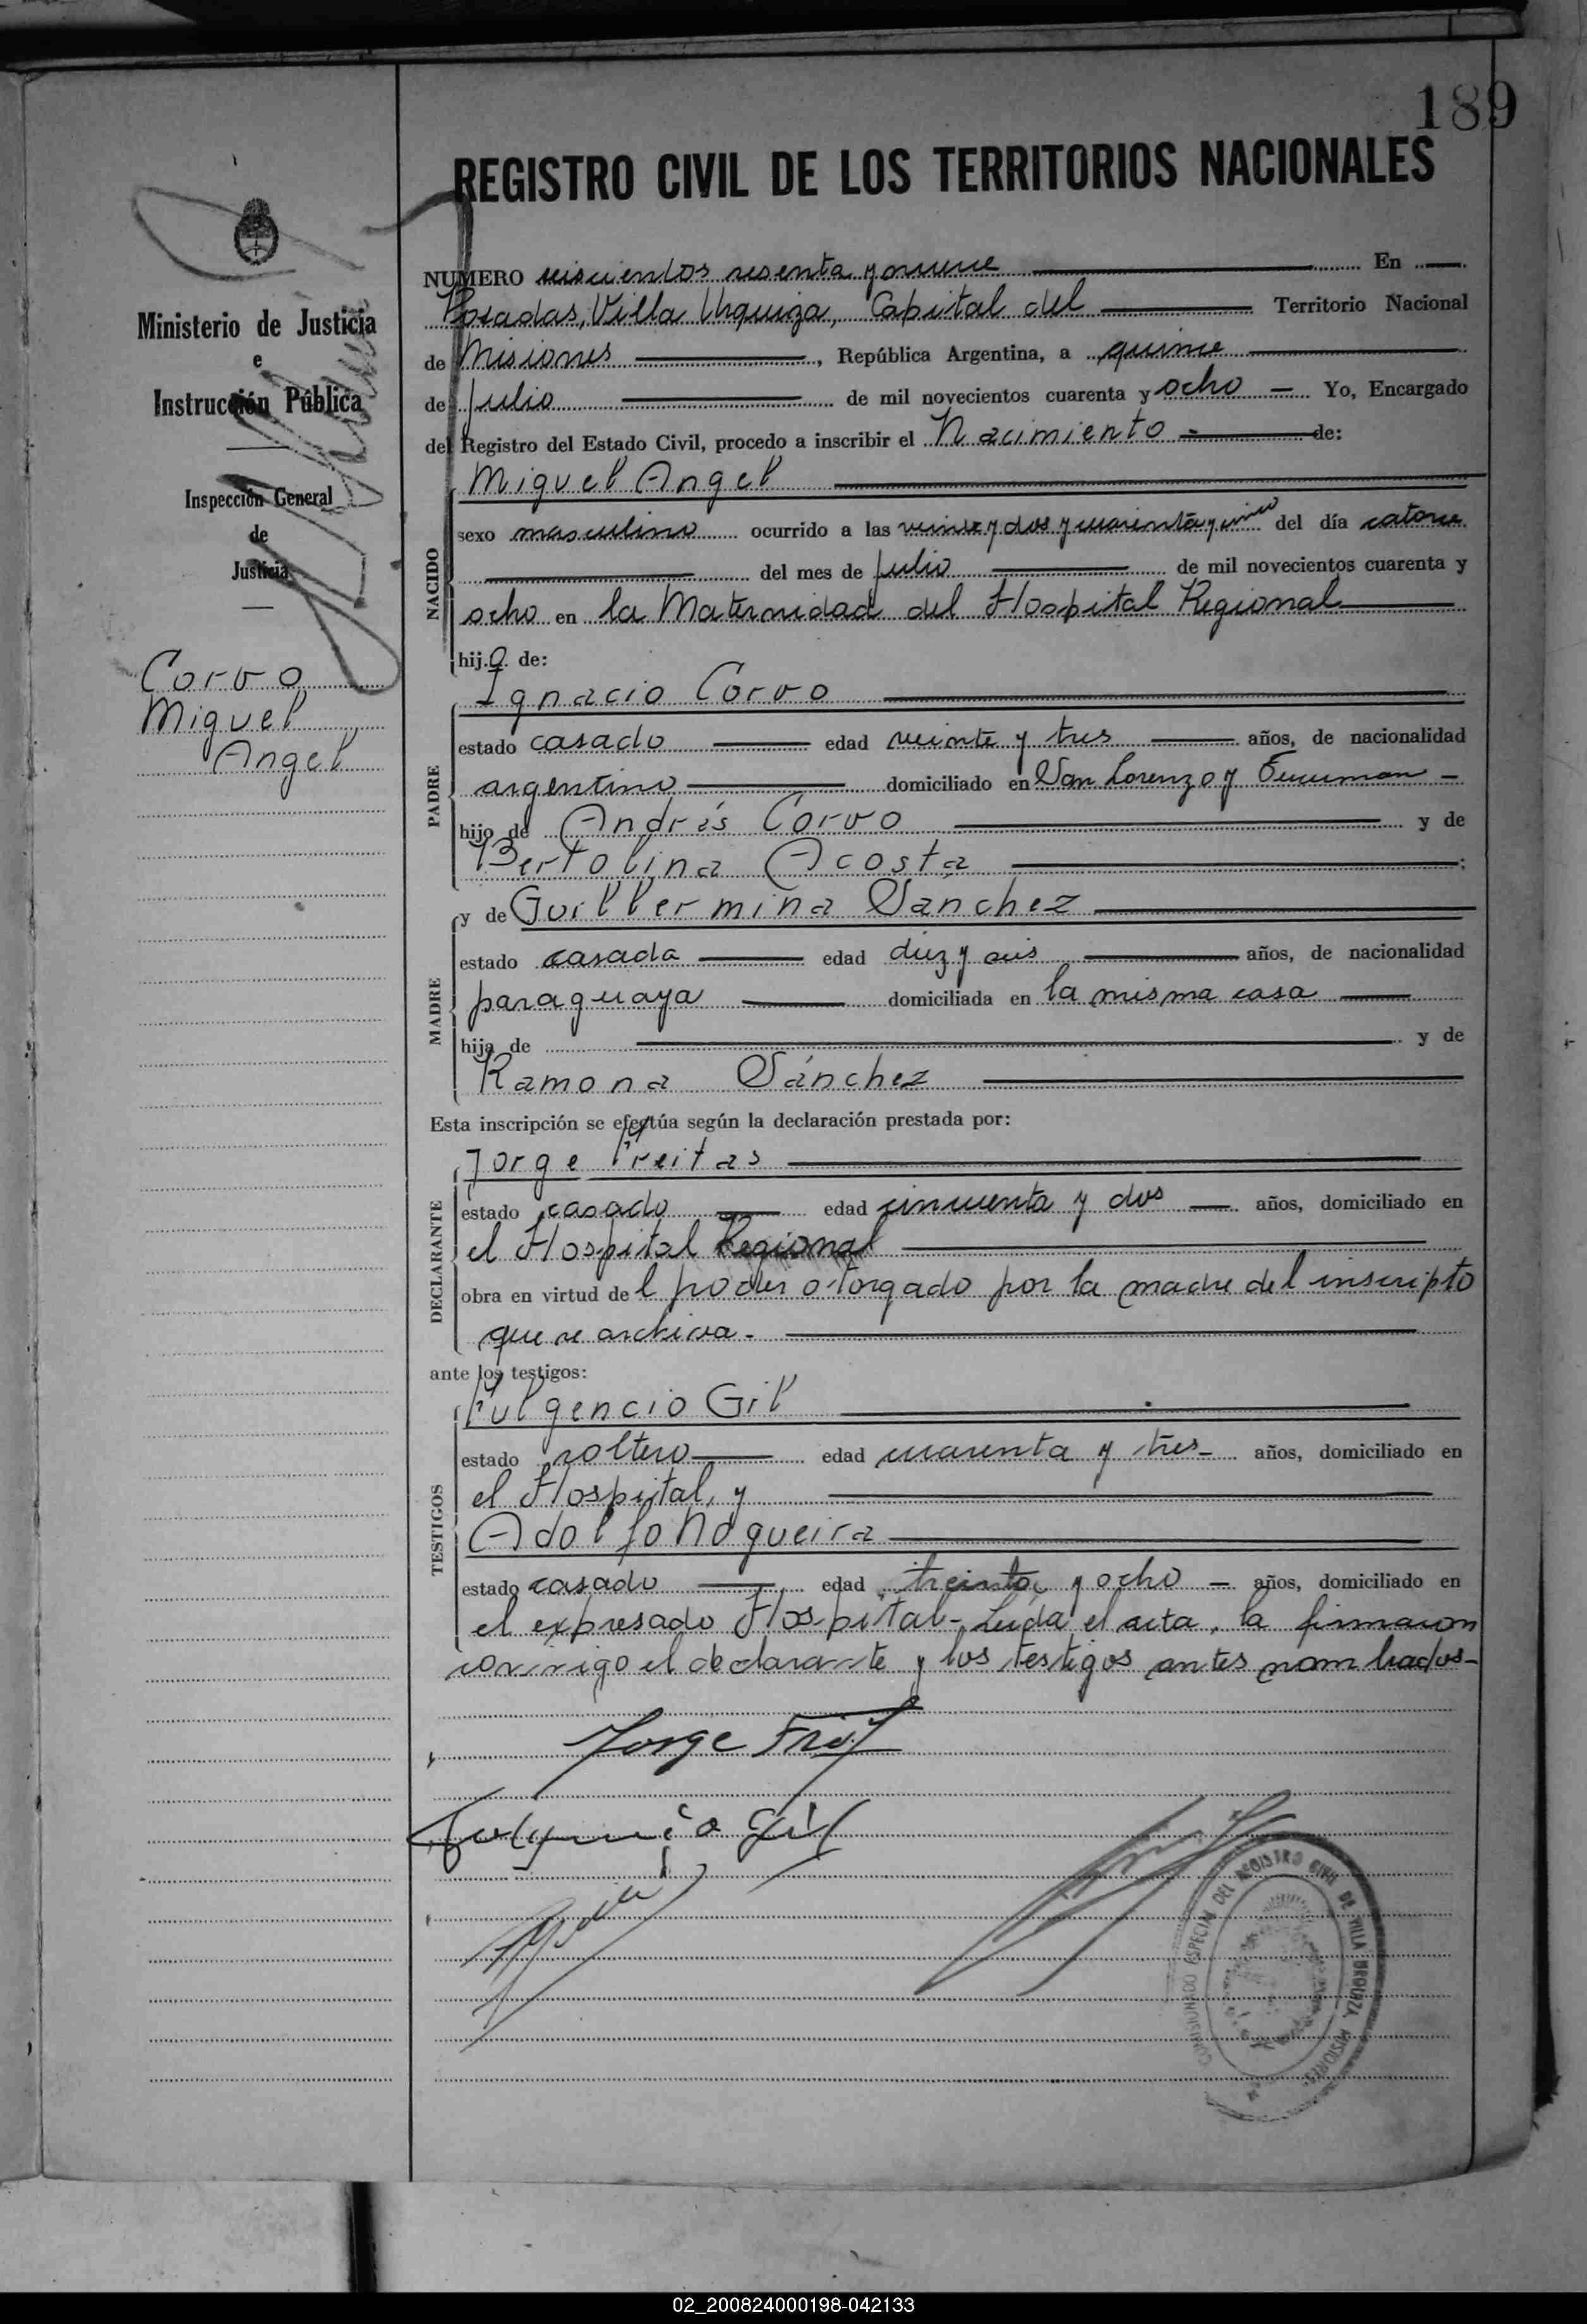 189
REGISTRO CIVIL DE LOS TERRITORIOS NACIONALES
Ministerio de Justicia
e
Instrucción Pública
Inspección General
de
Justicia
Corvo
Miguel
Angel
NUMERO seiscientos sesenta y nueve En
Posadas, Villa Urquiza, Capital del Territorio Nacional
de Misiones, República Argentina, a quince
de julio de mil novecientos cuarenta y ocho Yo, Encargado
del Registro del Estado Civil, procedo a inscribir el Nacimiento de:
NACIDO
Miguel Angel
sexo masculino ocurrido a las veinte y dos y cuarenta y cinco del día catorce
del mes de julio de mil novecientos cuarenta y
ocho en la Maternidad del Hospital Regional
hijo de:
PADRE
Ignacio Corvo
estado casado edad veinte y tres años, de nacionalidad
argentino domiciliado en San Lorenzo y Tucuman
hijo de Andrés Corvo y de
Bertolina Acosta;
MADRE
y de Guillermina Sánchez
estado casada edad diez y seis años, de nacionalidad
paraguaya domiciliada en la misma casa
hija de y de
Ramona Sánchez
Esta inscripción se efectúa según la declaración prestada por:
DECLARANTE
Jorge Freitas
estado casado edad cincuenta y dos años, domiciliado en
el Hospital Regional
obra en virtud del poder otorgado por la madre del inscripto
que se archiva.
ante los testigos:
TESTIGOS
Fulgencio Gil
estado soltero edad cuarenta y tres años, domiciliado en
el Hospital, y
Adolfo Nogueira
estado casado edad treinta y ocho años, domiciliado en
el expresado Hospital - Leída el acta, la firmaron
conmigo el declarante y los testigos antes nombrados-
Jorge
Fulgencio Gil
COMISIONADO ESPECIAL DEL REGISTRO CIVIL DE VILLA URQUIZA, MISIONES
02_200824000198-042133